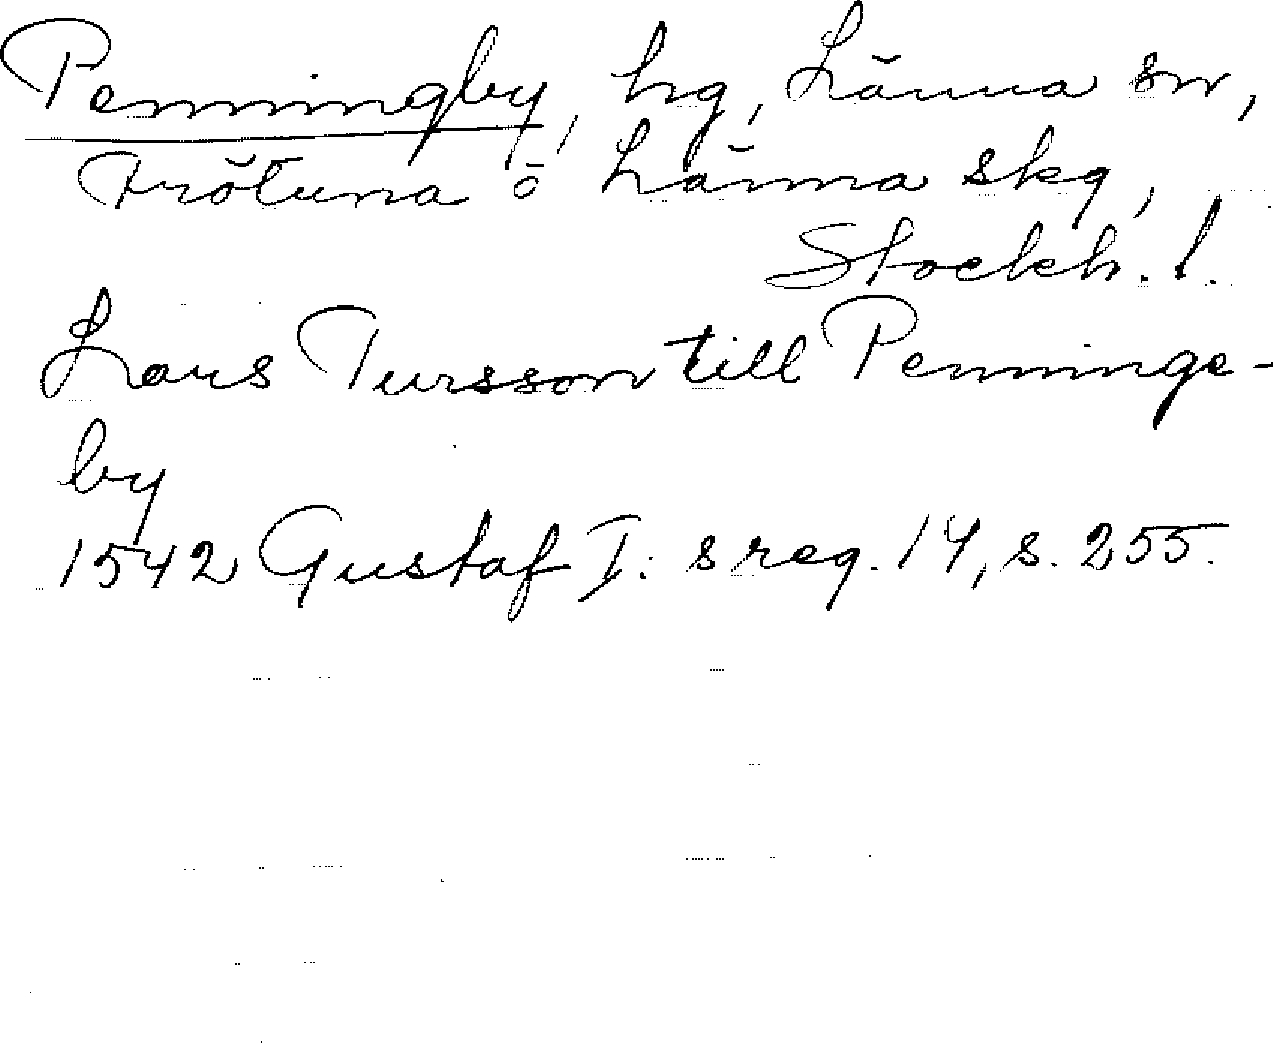 Penningby, hg, Länna sn,
Frötuna o Länna skg,
Stockh. l.
Lars Tursson till Penninge-
by
1542 Gustaf I: s reg. 14, s. 255.